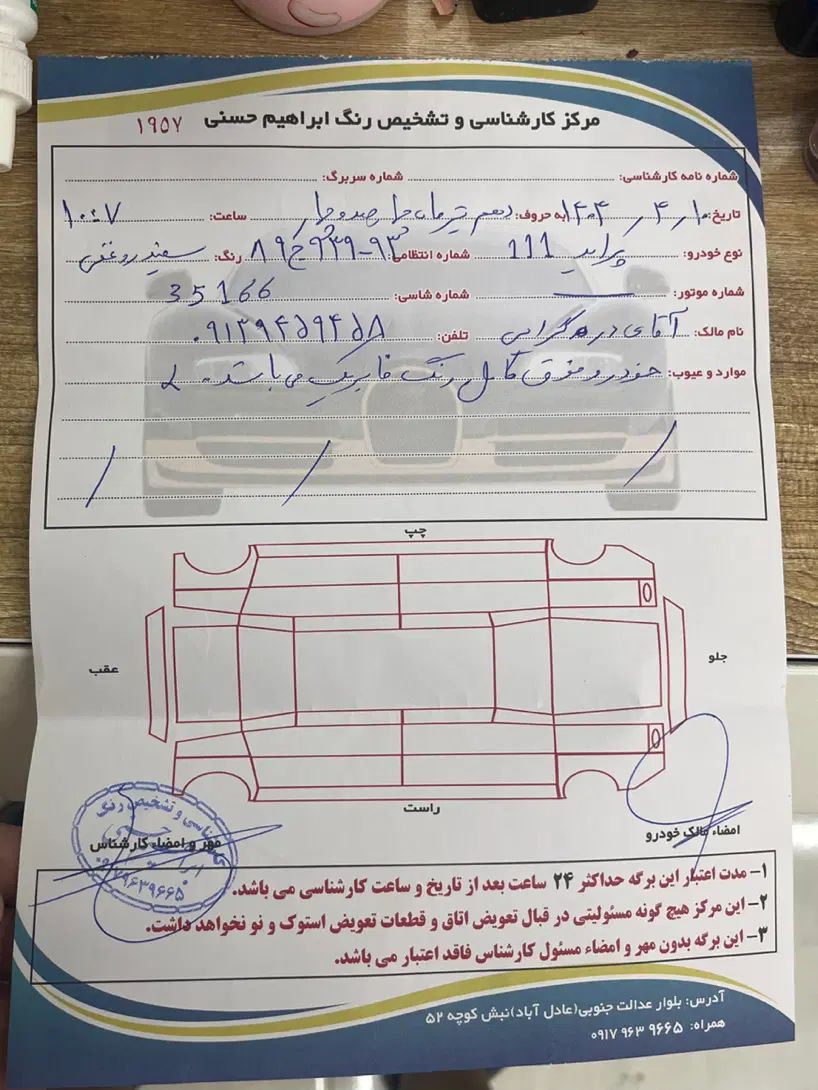 مرکز کارشناسی و تشخیص رنگ ابراهیم حسنی ۱۹۵۷
شماره نامه کارشناسی: شماره سربرگ:
تاریخ: ۱۴۰۴/۴/۱۰ به حروف: دهم تیرماه چهارصدو چهار ساعت: ۱۰:۰۷
نوع خودرو: پراید 111 شماره انتظامی: ۹۳-۹۲۹ج۸۹ رنگ: سفید روغنی
شماره موتور: شماره شاسی: 35166
نام مالک: آقای تلفن:
موارد و عیوب: خودرو فوق کامل رنگ فابریک می باشد.
چپ
جلو
عقب
راست
امضاء مالک خودرو
مهر و امضاء کارشناس
کارشناسی و تشخیص رنگ
۰۹۱۷۹۶۳۹۶۶۵
۱- مدت اعتبار این برگه حداکثر ۲۴ ساعت بعد از تاریخ و ساعت کارشناسی می باشد.
۲- این مرکز هیچ گونه مسئولیتی در قبال تعویض اتاق و قطعات تعویض استوک و نو نخواهد داشت.
۳- این برگه بدون مهر و امضاء مسئول کارشناس فاقد اعتبار می باشد.
آدرس: بلوار عدالت جنوبی(عادل آباد)نبش کوچه ۵۲
همراه: ۹۶۶۵ ۹۶۳ ۰۹۱۷